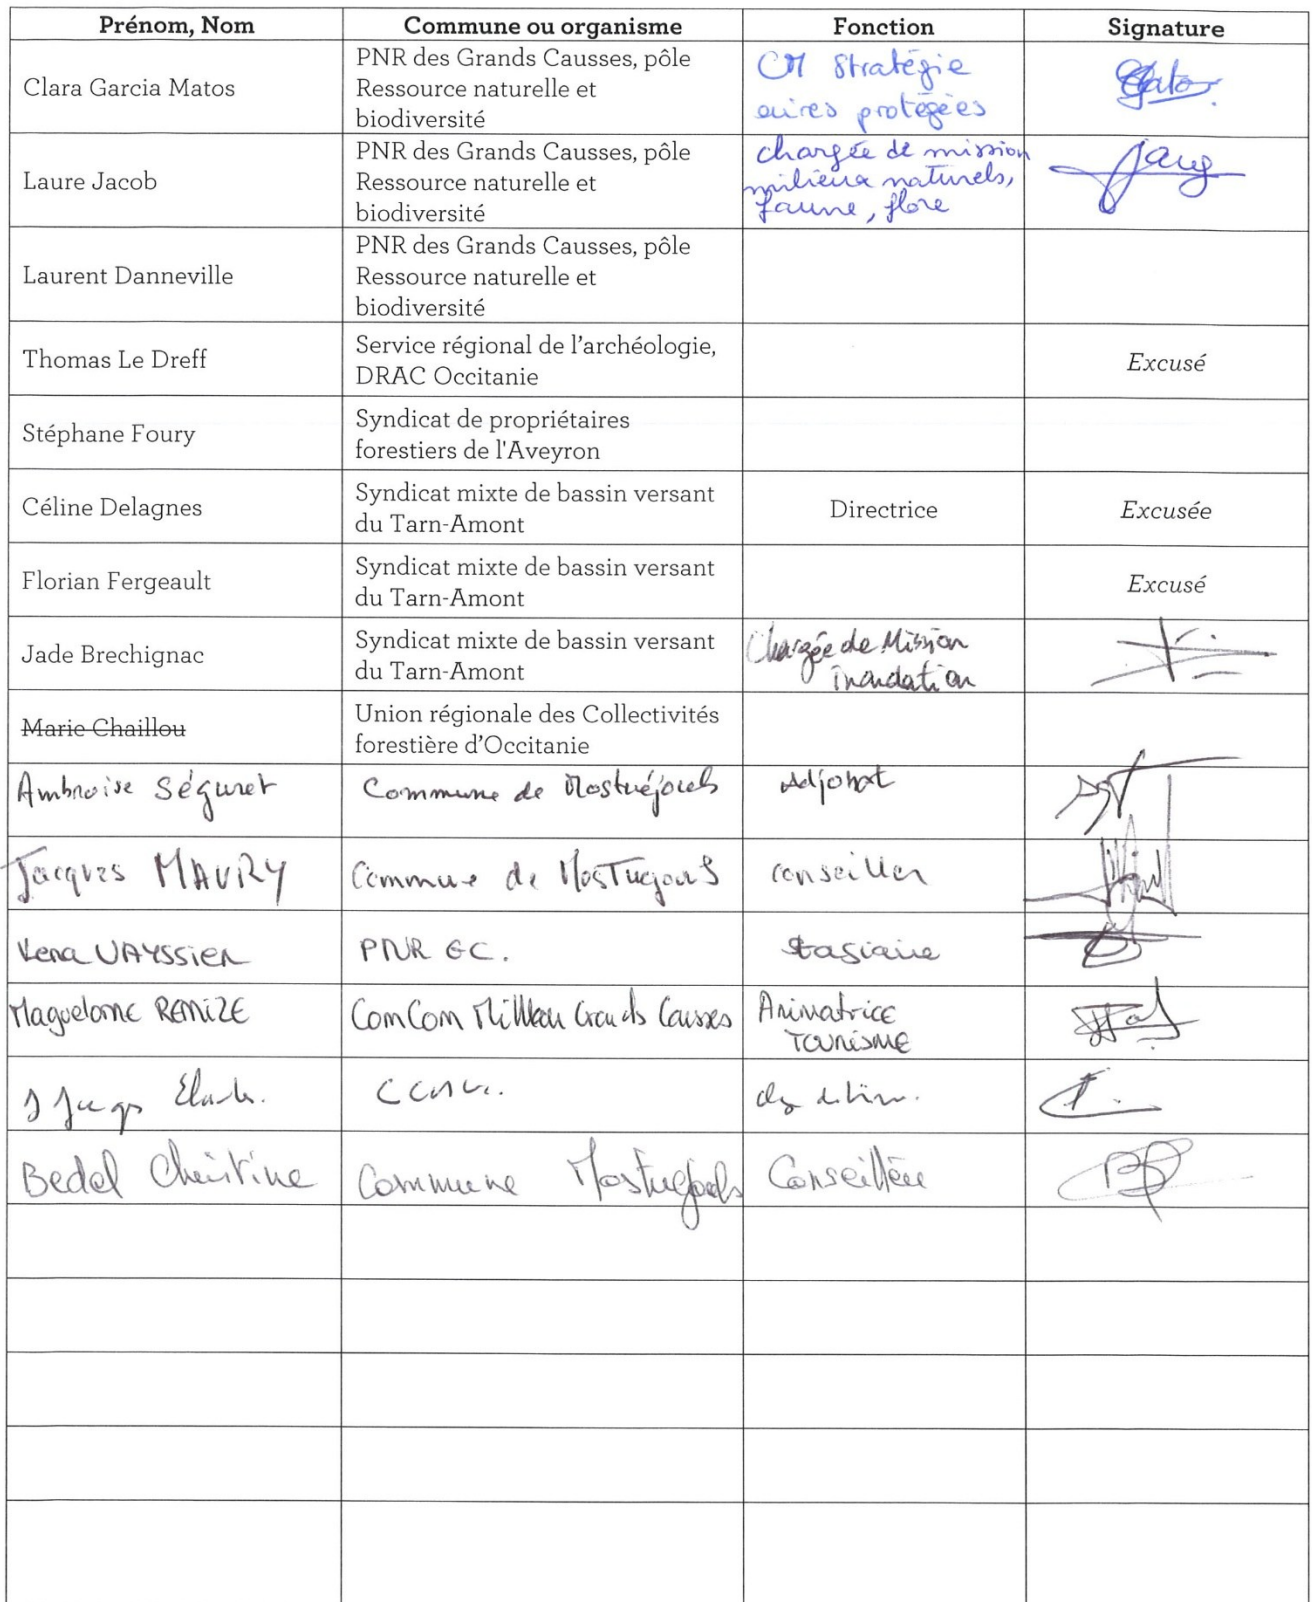 Prénom, Nom Commune ou organisme Fonction Signature
Clara Garcia Matos
PNR des Grands Causses, pôle
Ressource naturelle et
biodiversité
CM Stratégie
aires protégées
Laure Jacob
PNR des Grands Causses, pôle
Ressource naturelle et
biodiversité
chargée de mission
milieux naturels,
faune, flore
Laurent Danneville
PNR des Grands Causses, pôle
Ressource naturelle et
biodiversité
Thomas Le Dreff
Service régional de l'archéologie,
DRAC Occitanie
Excusé
Stéphane Foury
Syndicat de propriétaires
forestiers de l'Aveyron
Céline Delagnes
Syndicat mixte de bassin versant
du Tarn-Amont
Directrice
Excusée
Florian Fergeault
Syndicat mixte de bassin versant
du Tarn-Amont
Excusé
Jade Brechignac
Syndicat mixte de bassin versant
du Tarn-Amont
Chargée de Mission
inondation
Marie Chaillou
Union régionale des Collectivités
forestière d'Occitanie
Ambroise Séguret Commune de Mostuéjouls Adjoint
Jacques MAURY Commune de Mostuejouls conseiller
VAYSSIER PNR GC. Stagiaire
Maguelonne REMIZE ComCom Millau Grands Causses Animatrice
TOURISME
Bedel Christine Commune Mostuejouls Conseillère